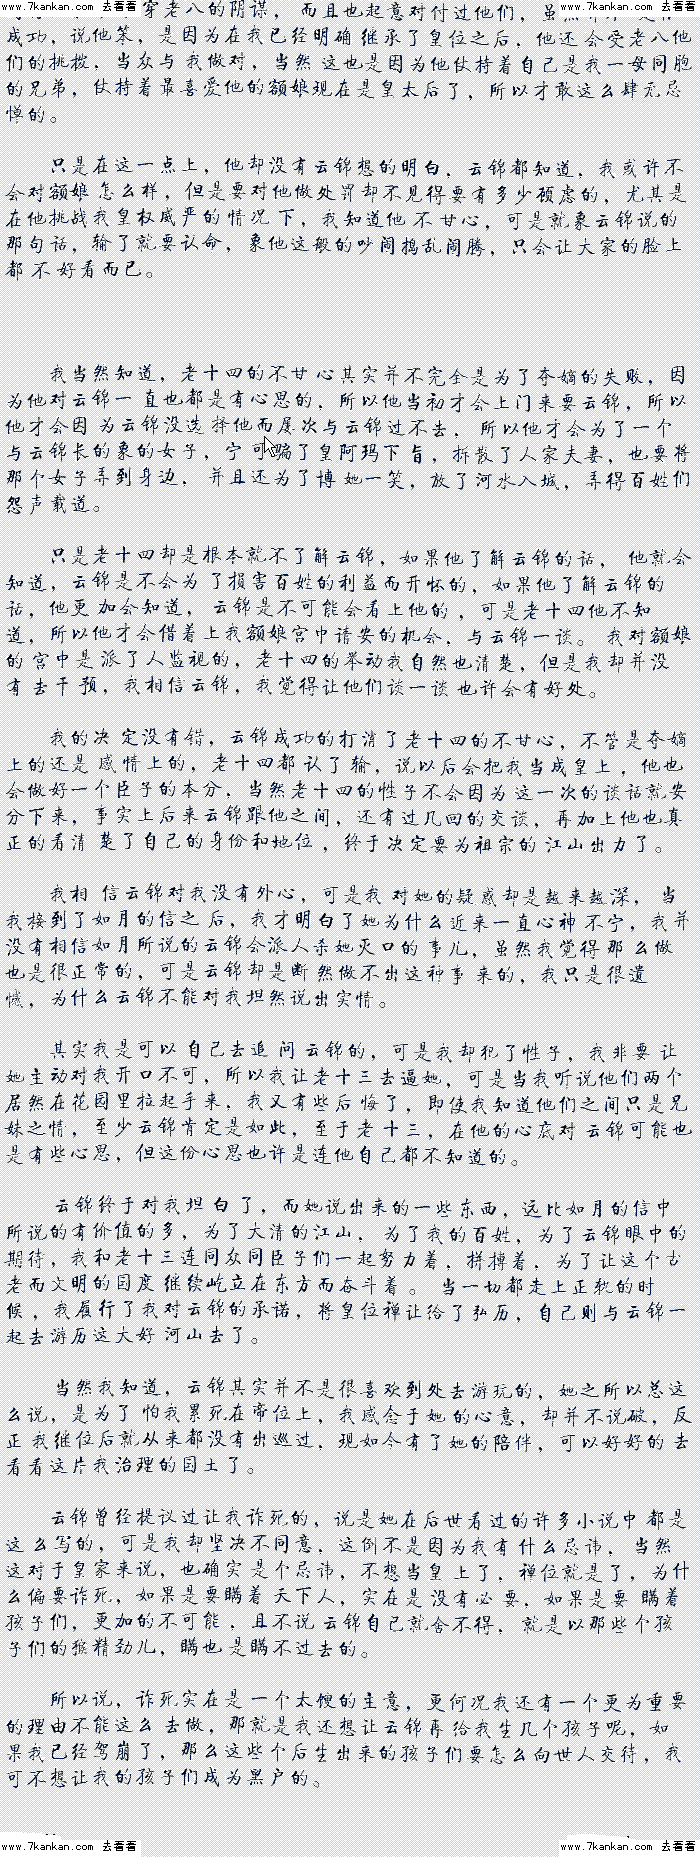 www.7kankan.com 去看看 穿老八的阴谋，而且也起意对付过他们，虽然 www.7kankan.com 去看看
成功，说他笨，是因为在我已经明确继承了皇位之后，他还会受老八他
们的挑拨，当众与我做对，当然这也是因为他仗持着自己是我一母同胞
的兄弟，仗持着最喜爱他的额娘现在是皇太后了，所以才敢这么肆无忌
惮的。
只是在这一点上，他却没有云锦想的明白，云锦都知道，我或许不
会对额娘怎么样，但是要对他做处罚却不见得要有多少顾虑的，尤其是
在他挑战我皇权威严的情况下，我知道他不甘心，可是就象云锦说的
那句话，输了就要认命，象他这般的吵闹捣乱闹腾，只会让大家的脸上
都不好看而已。
我当然知道，老十四的不甘心其实并不完全是为了夺嫡的失败，因
为他对云锦一直也都是有心思的，所以他当初才会上门来要云锦，所以
他才会因为云锦没选择他而屡次与云锦过不去，所以他才会为了一个
与云锦长的象的女子，宁可骗了皇阿玛下旨，拆散了人家夫妻，也要将
那个女子弄到身边，并且还为了博她一笑，放了河水入城，弄得百姓们
怨声载道。
只是老十四却是根本就不了解云锦，如果他了解云锦的话，他就会
知道，云锦是不会为了损害百姓的利益而开怀的，如果他了解云锦的
话，他更加会知道，云锦是不可能会看上他的，可是老十四他不知
道，所以他才会借着上我额娘宫中请安的机会，与云锦一谈。我对额娘
的宫中是派了人监视的，老十四的举动我自然也清楚，但是我却并没
有去干预，我相信云锦，我觉得让他们谈一谈也许会有好处。
我的决定没有错，云锦成功的打消了老十四的不甘心，不管是夺嫡
上的还是感情上的，老十四都认了输，说以后会把我当成皇上，他也
会做好一个臣子的本分，当然老十四的性子不会因为这一次的谈话就安
分下来，事实上后来云锦跟他之间，还有过几回的交谈，再加上他也真
正的看清楚了自己的身份和地位，终于决定要为祖宗的江山出力了。
我相信云锦对我没有外心，可是我对她的疑惑却是越来越深，当
我接到了如月的信之后，我才明白了她为什么近来一直心神不宁，我并
没有相信如月所说的云锦会派人杀她灭口的事儿，虽然我觉得那么做
也是很正常的，可是云锦却是断然做不出这种事来的，我只是很遗
憾，为什么云锦不能对我坦然说出实情。
其实我是可以自己去追问云锦的，可是我却犯了性子，我非要让
她主动对我开口不可，所以我让老十三去逼她，可是当我听说他们两个
居然在花园里拉起手来，我又有些后悔了，即使我知道他们之间只是兄
妹之情，至少云锦肯定是如此，至于老十三，在他的心底对云锦可能也
是有些心思，但这份心思也许是连他自己都不知道的。
云锦终于对我坦白了，而她说出来的一些东西，远比如月的信中
所说的有价值的多，为了大清的江山，为了我的百姓，为了云锦眼中的
期待，我和老十三连同众同臣子们一起努力着，拼搏着，为了让这个古
老而文明的国度继续屹立在东方而奋斗着。当一切都走上正轨的时
候，我履行了我对云锦的承诺，将皇位禅让给了弘历，自己则与云锦一
起去游历这大好河山去了。
当然我知道，云锦其实并不是很喜欢到处去游玩的，她之所以总这
么说，是为了怕我累死在帝位上，我感念于她的心意，却并不说破，反
正我继位后就从来都没有出巡过，现如今有了她的陪伴，可以好好的去
看看这片我治理的国土了。
云锦曾经提议过让我诈死的，说是她在后世看过的许多小说中都是
这么写的，可是我却坚决不同意，这倒不是因为我有什么忌讳，当然
这对于皇家来说，也确实是个忌讳，不想当皇上了，禅位就是了，为什
么偏要诈死，如果是要瞒着天下人，实在是没有必要，如果是要瞒着
孩子们，更加的不可能，且不说云锦自己就舍不得，就是以那些个孩
子们的猴精劲儿，瞒也是瞒不过去的。
所以说，诈死实在是一个太馊的主意，更何况我还有一个更为重要
的理由不能这么去做，那就是我还想让云锦再给我生几个孩子呢，如
果我已经驾崩了，那么这些个后生出来的孩子们要怎么向世人交待，我
可不想让我的孩子们成为黑户的。
www.7kankan.com 去看看 www.7kankan.com 去看看